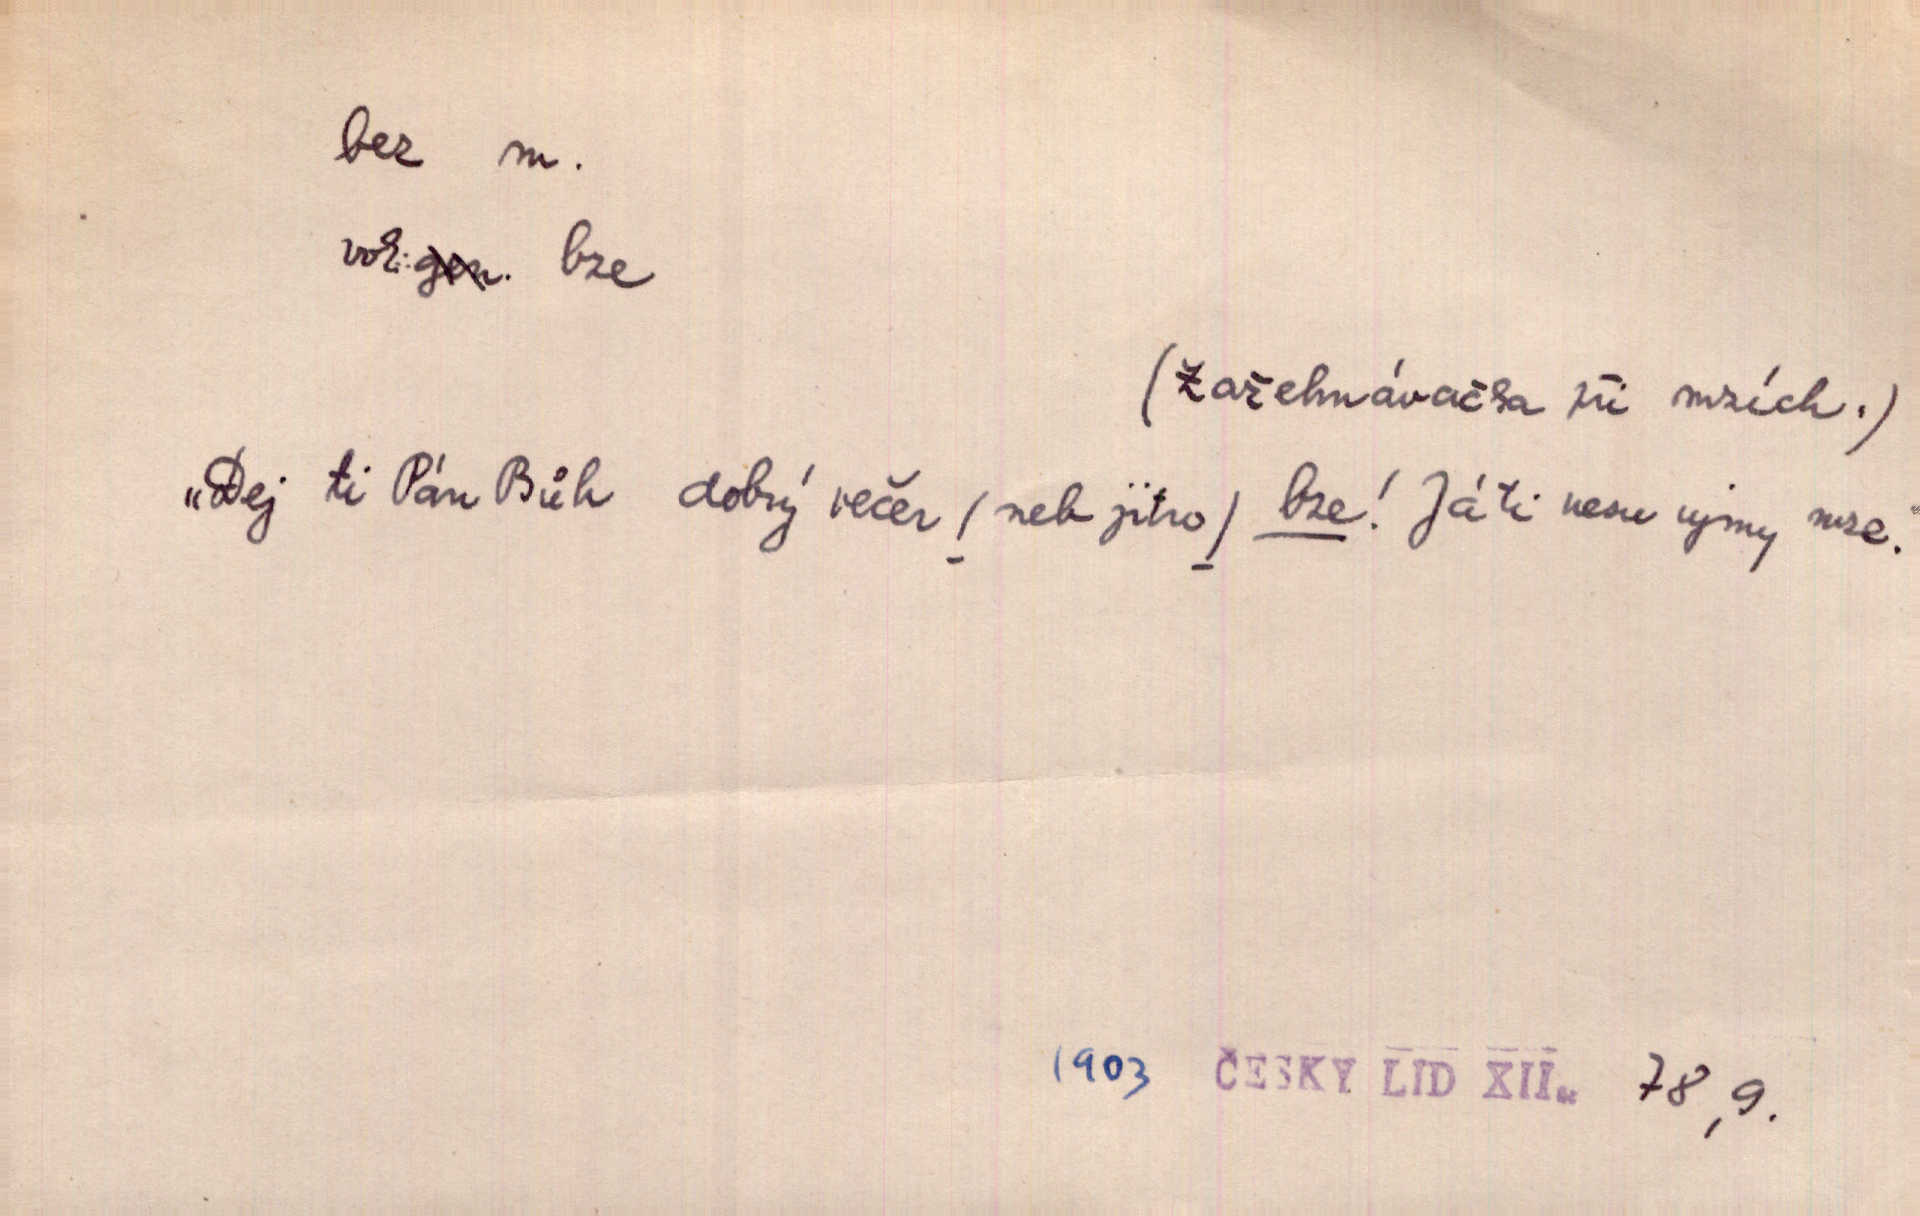 bez m.
vok. gen. bze
(Zažehnávačka při mzích.)
„Dej ti Pán Bůh dobrý večer (neb jitro) bze! Já ti nesu ujmy mze."
1903 ČESKÝ LID XII. 78,9.